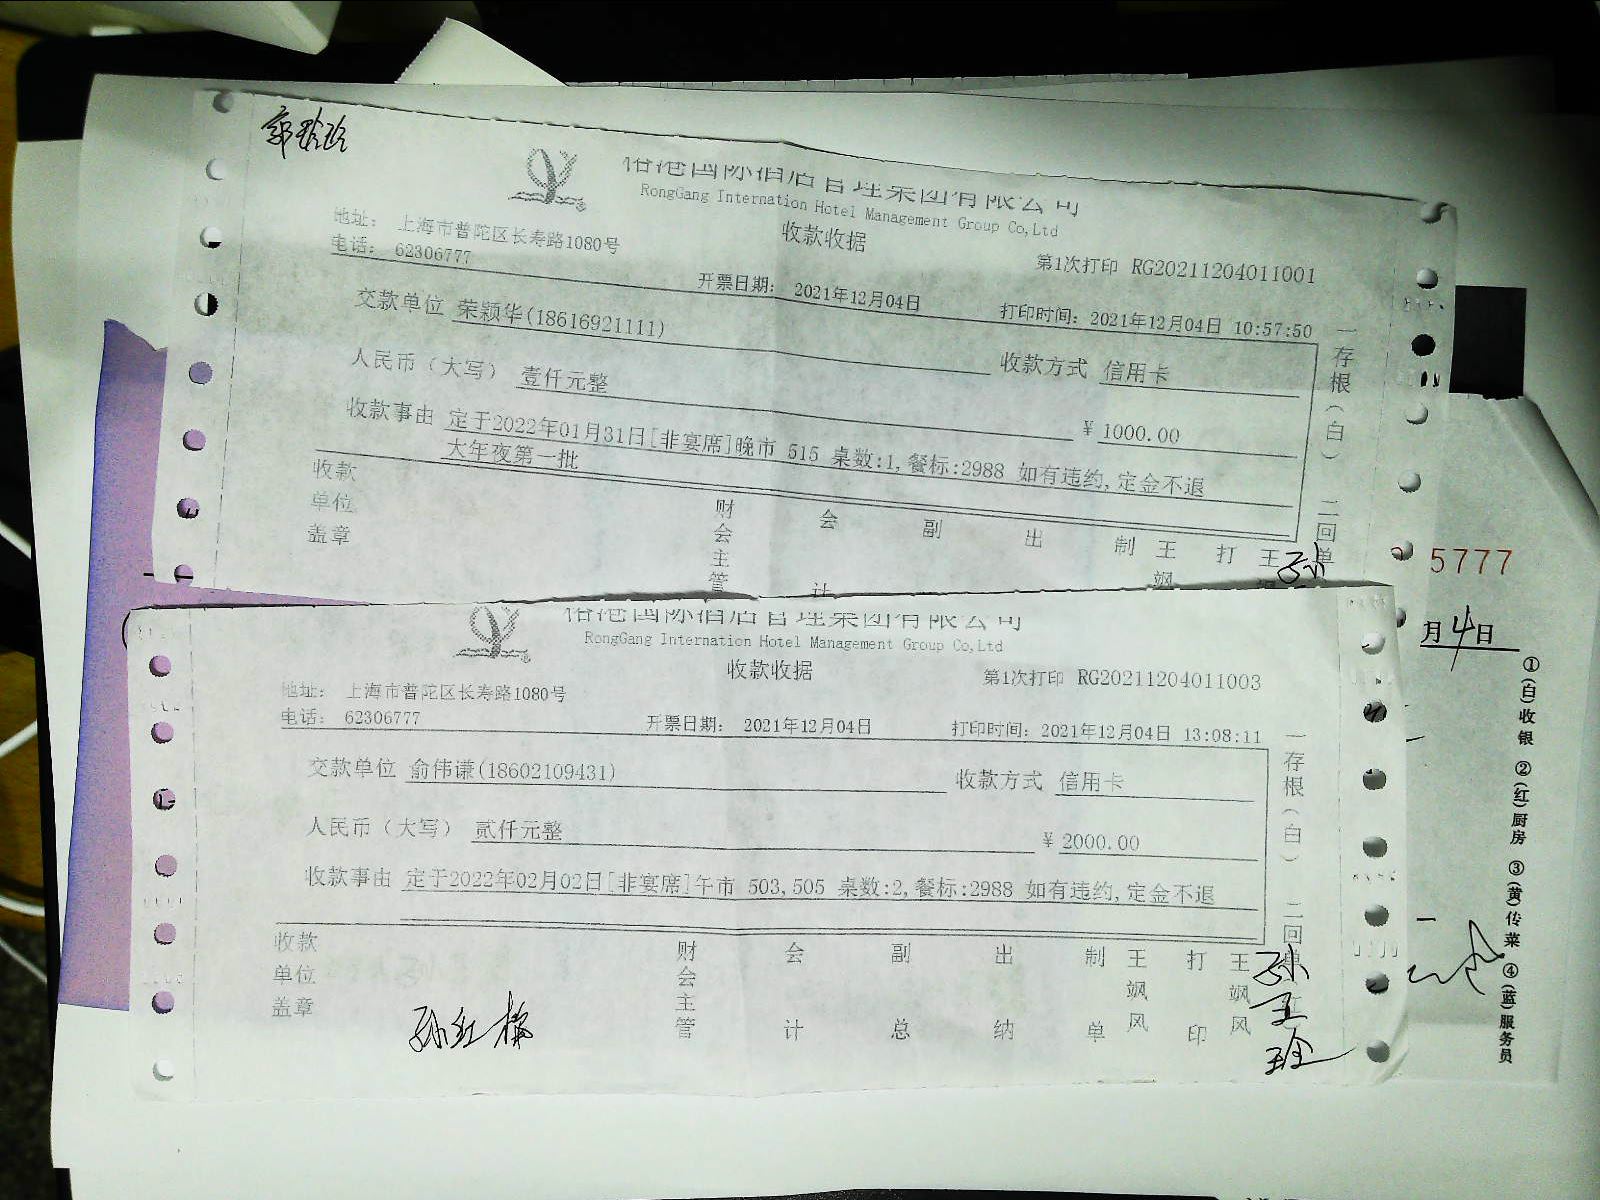 国际酒店管理集团有限公司
RongGang Internation Hotel Management Group Co,Ltd
收款收据
地址： 上海市普陀区长寿路1080号
电话： 62306777
第1次打印 RG20211204011001
开票日期： 2021年12月04日
打印时间：2021年12月04日 10:57:50
交款单位 荣颖华(18616921111)
收款方式 信用卡
人民币（大写） 壹仟元整
¥ 1000.00
收款事由 定于2022年01月31日[非宴席]晚市 515 桌数:1,餐标:2988 如有违约,定金不退
大年夜第一批
收款单位盖章
财会主管 会计 副 出 制 王飒 打 王
一存根（白） 二回单
孙
国际酒店管理集团有限公司
RongGang Internation Hotel Management Group Co,Ltd
收款收据
第1次打印 RG20211204011003
地址： 上海市普陀区长寿路1080号
电话： 62306777
开票日期： 2021年12月04日
打印时间：2021年12月04日 13:08:11
交款单位 俞伟谦(18602109431)
收款方式 信用卡
人民币（大写） 贰仟元整
¥ 2000.00
收款事由 定于2022年02月02日[非宴席]午市 503,505 桌数:2,餐标:2988 如有违约,定金不退
收款单位盖章
财会主管 会计 副总 出纳 制单 王飒风 打印 王飒风
一存根（白） 二回
孙红梅
孙
5777
月4日
①(白)收银 ②(红)厨房 ③(黄)传菜 ④(蓝)服务员